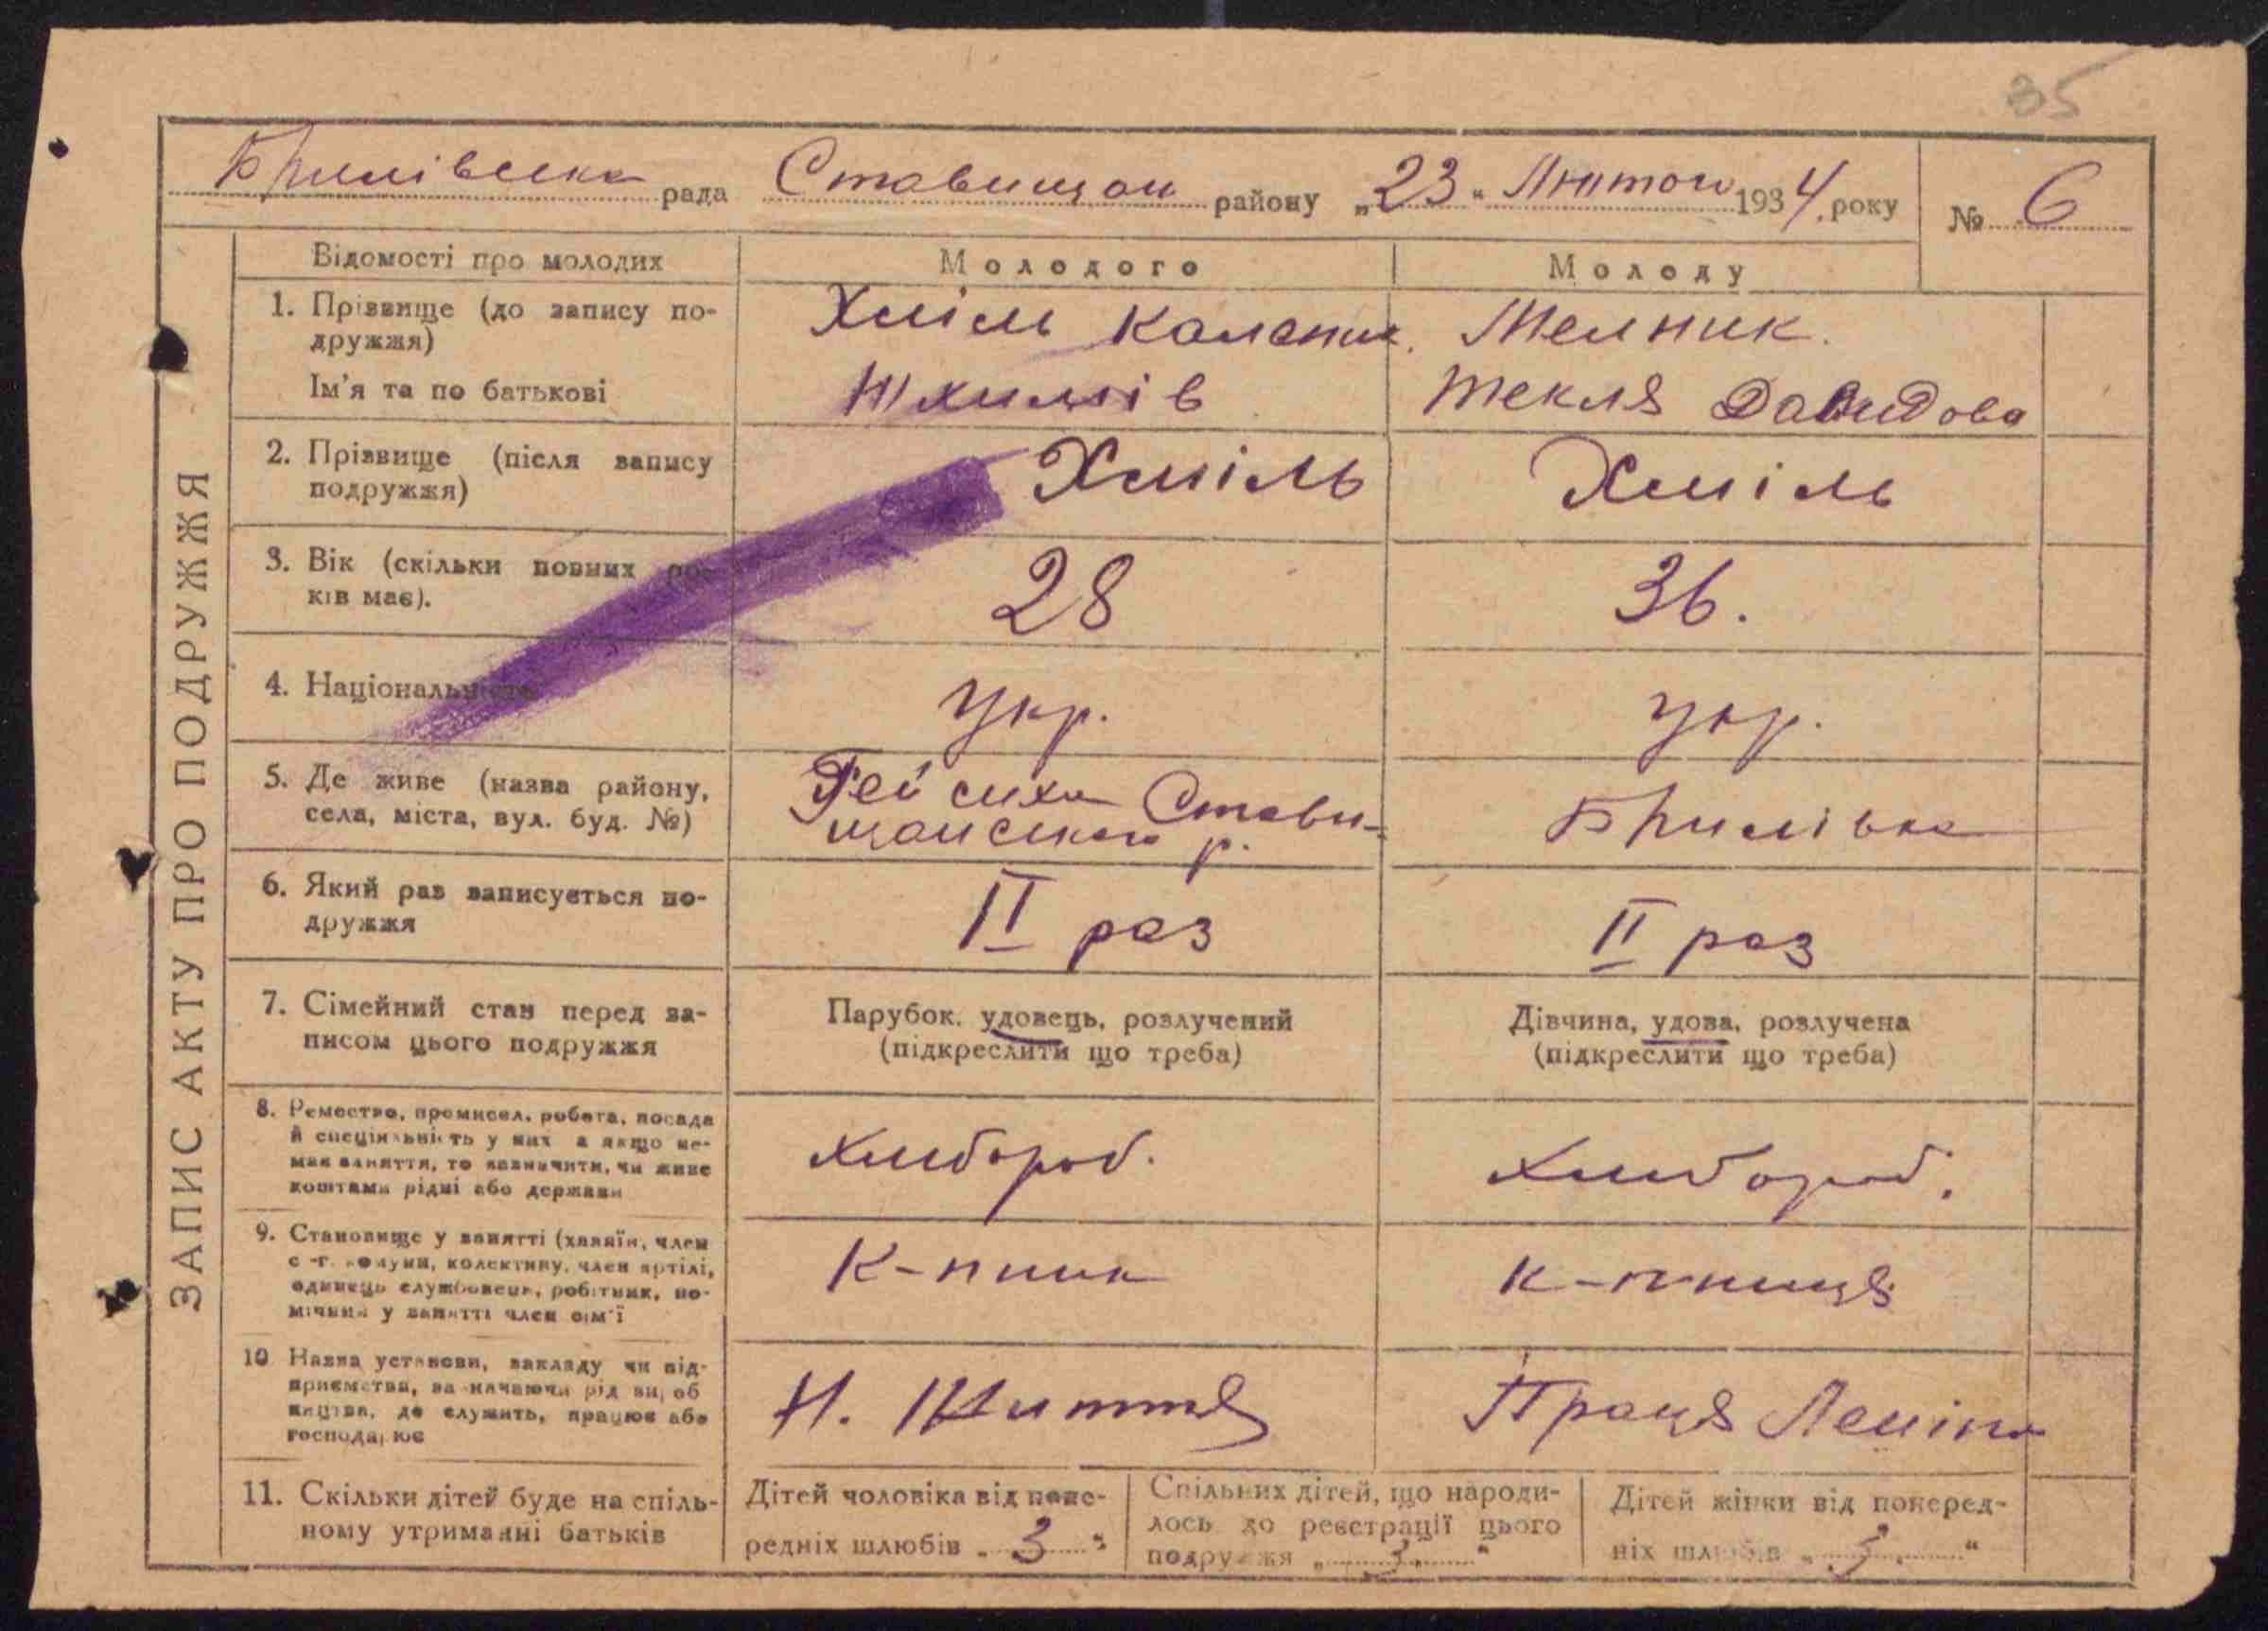 35
Брилівська рада Ставищан району „23“ Лютого 1934 року № 6
ЗАПИС АКТУ ПРО ПОДРУЖЖЯ
Відомості про молодих Молодого Молоду
1. Прізвище (до запису по- Хміль Калени́к. Мелник.
дружжя)
Ім'я та по батькові Текля Давидова
2. Прізвище (після запису Хміль Хміль
подружжя)
3. Вік (скільки повних ро- 28 36.
ків має).
4. Національність Укр. Укр.
5. Де живе (назва району, Гейсиха Стави- Брилівка
села, міста, вул. буд. №) щанського р.
6. Який раз записується по- II раз II раз
дружжя
7. Сімейний стан перед за- Парубок, удовець, розлучений Дівчина, удова, розлучена
писом цього подружжя (підкреслити що треба) (підкреслити що треба)
8. Ремество, промисел, робота, посада Хлибороб. Хлибороб.
й спеціяльність у них а якщо не-
має заняття, то зазначити, чи живе
коштами рідні або держави
9. Становище у занятті (хазяїн, член К-пник К-пниця
с.-г. комуни, колективу, член артілі,
одинець службовець, робітник, по-
мічний у занятті член сім'ї
10 Назва установи, закладу чи під- Н. Життя Праця Леніна
приємства, зазначаючи рід вироб
ництва, де служить, працює або
господарює
11. Скільки дітей буде на спіль- Дітей чоловіка від попе- Спільних дітей, що народи- Дітей жінки від поперед-
ному утриманні батьків редніх шлюбів „3“ лось до реєстрації цього ніх шлюбів „3.“
подружжя „3.“